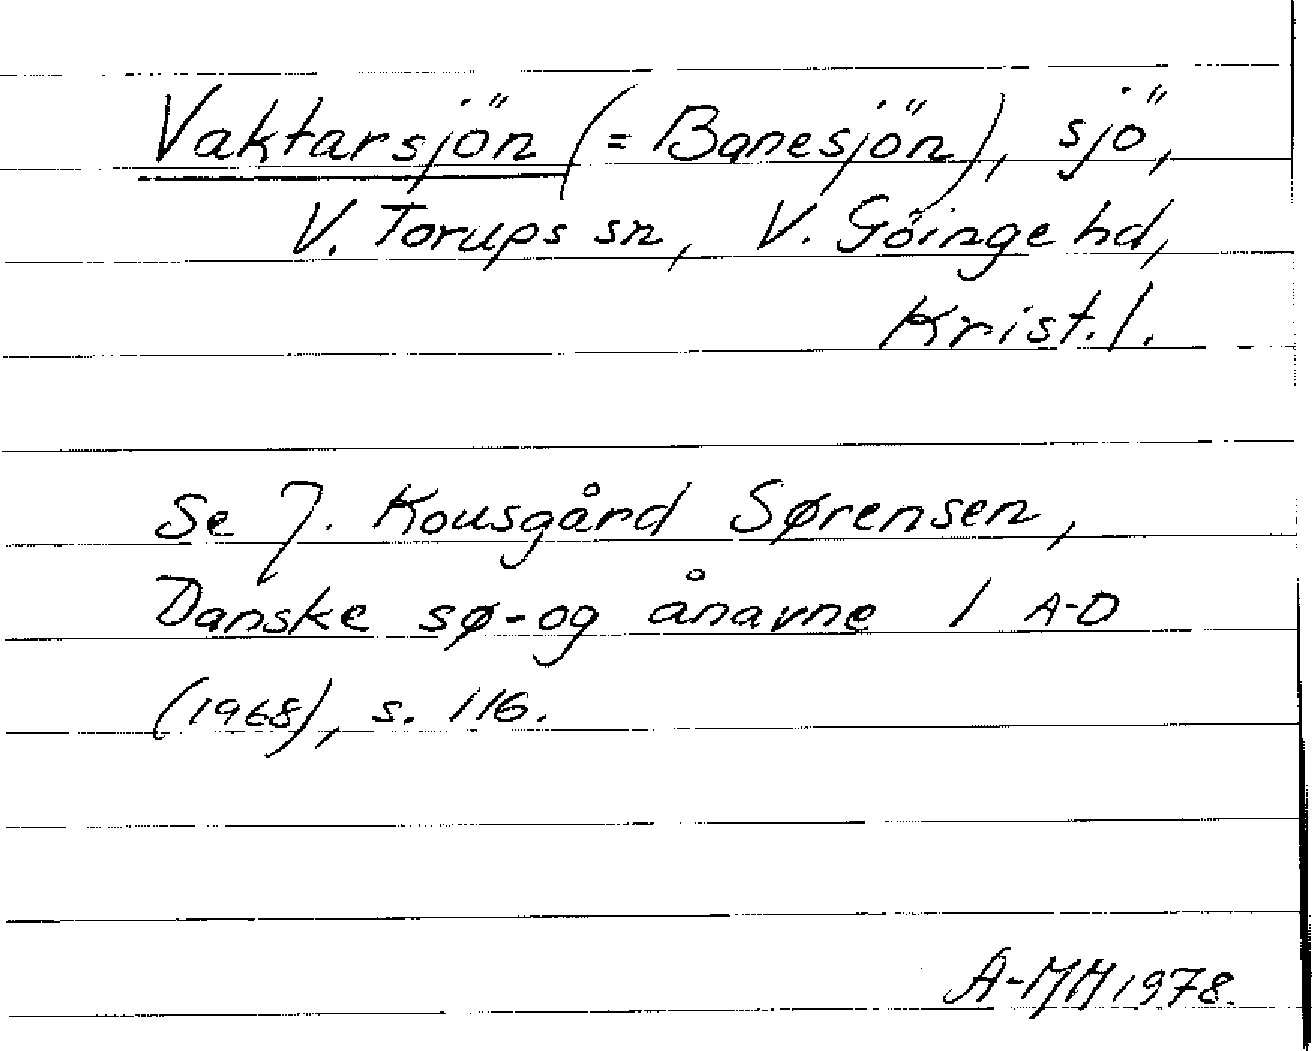 Vaktarsjön (= Banesjön), sjö,
V. Torups sn, V. Göinge hd,
Krist. l.
Se J. Kousgård Sørensen,
Danske sø- og ånavne 1 A-D
(1968), s. 116.
A-MM 1978.